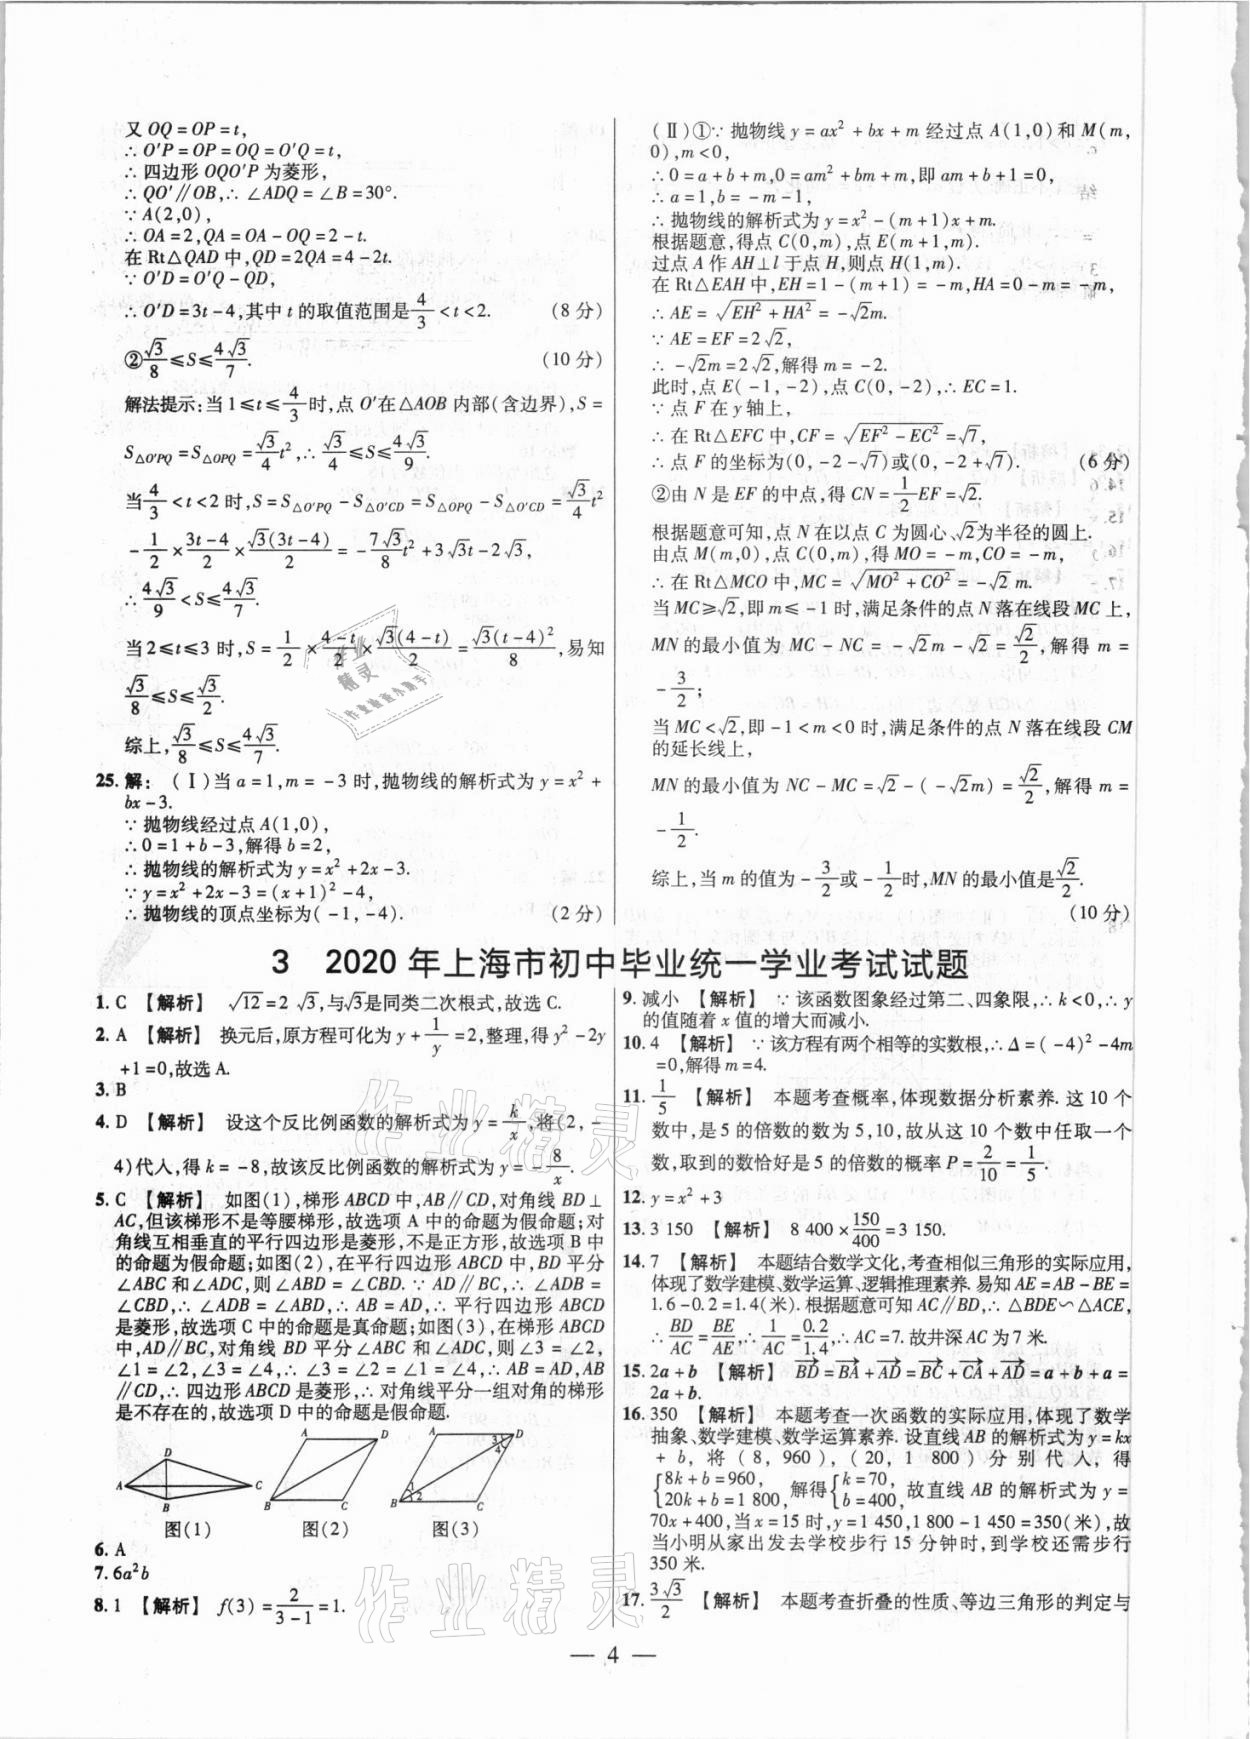 又OQ=OP=t,
∴O′P=OP=OQ=O′Q=t,
∴四边形OQO′P为菱形,
∴QO′∥OB,∴∠ADQ=∠B=30°.
∵A(2,0),
∴OA=2,QA=OA-OQ=2-t.
在Rt△QAD中,QD=2QA=4-2t.
∵O′D=O′Q-QD,
∴O′D=3t-4,其中t的取值范围是4/3<t<2. (8分)
②√3/8≤S≤4√3/7. (10分)
解法提示:当1≤t≤4/3时,点O′在△AOB内部(含边界),S=
S△O′PQ=S△OPQ=√3/4t²,∴√3/4≤S≤4√3/9.
当4/3<t<2时,S=S△O′PQ-S△O′CD=S△OPQ-S△O′CD=√3/4t²
-1/2×(3t-4)/2×√3(3t-4)/2=-7√3/8t²+3√3t-2√3,
∴4√3/9<S≤4√3/7.
当2≤t≤3时,S=1/2×(4-t)/2×√3(4-t)/2=√3(t-4)²/8,易知
√3/8≤S≤√3/2.
综上,√3/8≤S≤4√3/7.
25.解:(Ⅰ)当a=1,m=-3时,抛物线的解析式为y=x²+
bx-3.
∵抛物线经过点A(1,0),
∴0=1+b-3,解得b=2,
∴抛物线的解析式为y=x²+2x-3.
∵y=x²+2x-3=(x+1)²-4,
∴抛物线的顶点坐标为(-1,-4). (2分)
(Ⅱ)①∵抛物线y=ax²+bx+m经过点A(1,0)和M(m,
0),m<0,
∴0=a+b+m,0=am²+bm+m,即am+b+1=0,
∴a=1,b=-m-1,
∴抛物线的解析式为y=x²-(m+1)x+m.
根据题意,得点C(0,m),点E(m+1,m).
过点A作AH⊥l于点H,则点H(1,m).
在Rt△EAH中,EH=1-(m+1)=-m,HA=0-m=-m,
∴AE=√(EH²+HA²)=-√2m.
∵AE=EF=2√2,
∴-√2m=2√2,解得m=-2.
此时,点E(-1,-2),点C(0,-2),∴EC=1.
∵点F在y轴上,
∴在Rt△EFC中,CF=√(EF²-EC²)=√7,
∴点F的坐标为(0,-2-√7)或(0,-2+√7). (6分)
②由N是EF的中点,得CN=1/2EF=√2.
根据题意可知,点N在以点C为圆心、√2为半径的圆上.
由点M(m,0),点C(0,m),得MO=-m,CO=-m,
∴在Rt△MCO中,MC=√(MO²+CO²)=-√2m.
当MC≥√2,即m≤-1时,满足条件的点N落在线段MC上,
MN的最小值为MC-NC=-√2m-√2=√2/2,解得m=
-3/2;
当MC<√2,即-1<m<0时,满足条件的点N落在线段CM
的延长线上,
MN的最小值为NC-MC=√2-(-√2m)=√2/2,解得m=
-1/2.
综上,当m的值为-3/2或-1/2时,MN的最小值是√2/2.
(10分)
3 2020年上海市初中毕业统一学业考试试题
1.C 【解析】 √12=2√3,与√3是同类二次根式,故选C.
2.A 【解析】 换元后,原方程可化为y+1/y=2,整理,得y²-2y
+1=0,故选A.
3.B
4.D 【解析】 设这个反比例函数的解析式为y=k/x,将(2,-
4)代入,得k=-8,故该反比例函数的解析式为y=-8/x.
5.C 【解析】 如图(1),梯形ABCD中,AB∥CD,对角线BD⊥
AC,但该梯形不是等腰梯形,故选项A中的命题为假命题;对
角线互相垂直的平行四边形是菱形,不是正方形,故选项B中
的命题为假命题;如图(2),在平行四边形ABCD中,BD平分
∠ABC和∠ADC,则∠ABD=∠CBD.∵AD∥BC,∴∠ADB=
∠CBD,∴∠ADB=∠ABD,∴AB=AD,∴平行四边形ABCD
是菱形,故选项C中的命题是真命题;如图(3),在梯形ABCD
中,AD∥BC,对角线BD平分∠ABC和∠ADC,则∠3=∠2,
∠1=∠2,∠3=∠4,∴∠3=∠2=∠1=∠4,∴AB=AD,AB
∥CD,∴四边形ABCD是菱形,∴对角线平分一组对角的梯形
是不存在的,故选项D中的命题是假命题.
A D B C
A D B C
A D 3 4 1 2 B C
图(1) 图(2) 图(3)
6.A
7.6a²b
8.1 【解析】 f(3)=2/(3-1)=1.
9.减小 【解析】 ∵该函数图象经过第二、四象限,∴k<0,∴y
的值随着x值的增大而减小.
10.4 【解析】 ∵该方程有两个相等的实数根,∴Δ=(-4)²-4m
=0,解得m=4.
11.1/5 【解析】 本题考查概率,体现数据分析素养.这10个
数中,是5的倍数的数为5,10,故从这10个数中任取一个
数,取到的数恰好是5的倍数的概率P=2/10=1/5.
12.y=x²+3
13.3 150 【解析】 8 400×150/400=3 150.
14.7 【解析】 本题结合数学文化,考查相似三角形的实际应用,
体现了数学建模、数学运算、逻辑推理素养.易知AE=AB-BE=
1.6-0.2=1.4(米).根据题意可知AC∥BD,∴△BDE∽△ACE,
∴BD/AC=BE/AE,∴1/AC=0.2/1.4,∴AC=7.故井深AC为7米.
15.2a+b 【解析】 BD→=BA→+AD→=BC→+CA→+AD→=a+b+a=
2a+b.
16.350 【解析】 本题考查一次函数的实际应用,体现了数学
抽象、数学建模、数学运算素养.设直线AB的解析式为y=kx
+b,将(8,960),(20,1 800)分别代入,得
{8k+b=960, 20k+b=1 800, 解得{k=70, b=400, 故直线AB的解析式为y=
70x+400,当x=15时,y=1 450,1 800-1 450=350(米),故
当小明从家出发去学校步行15分钟时,到学校还需步行
350米.
17.3√3/2 【解析】 本题考查折叠的性质、等边三角形的判定与
— 4 —
作业精灵
作业精灵